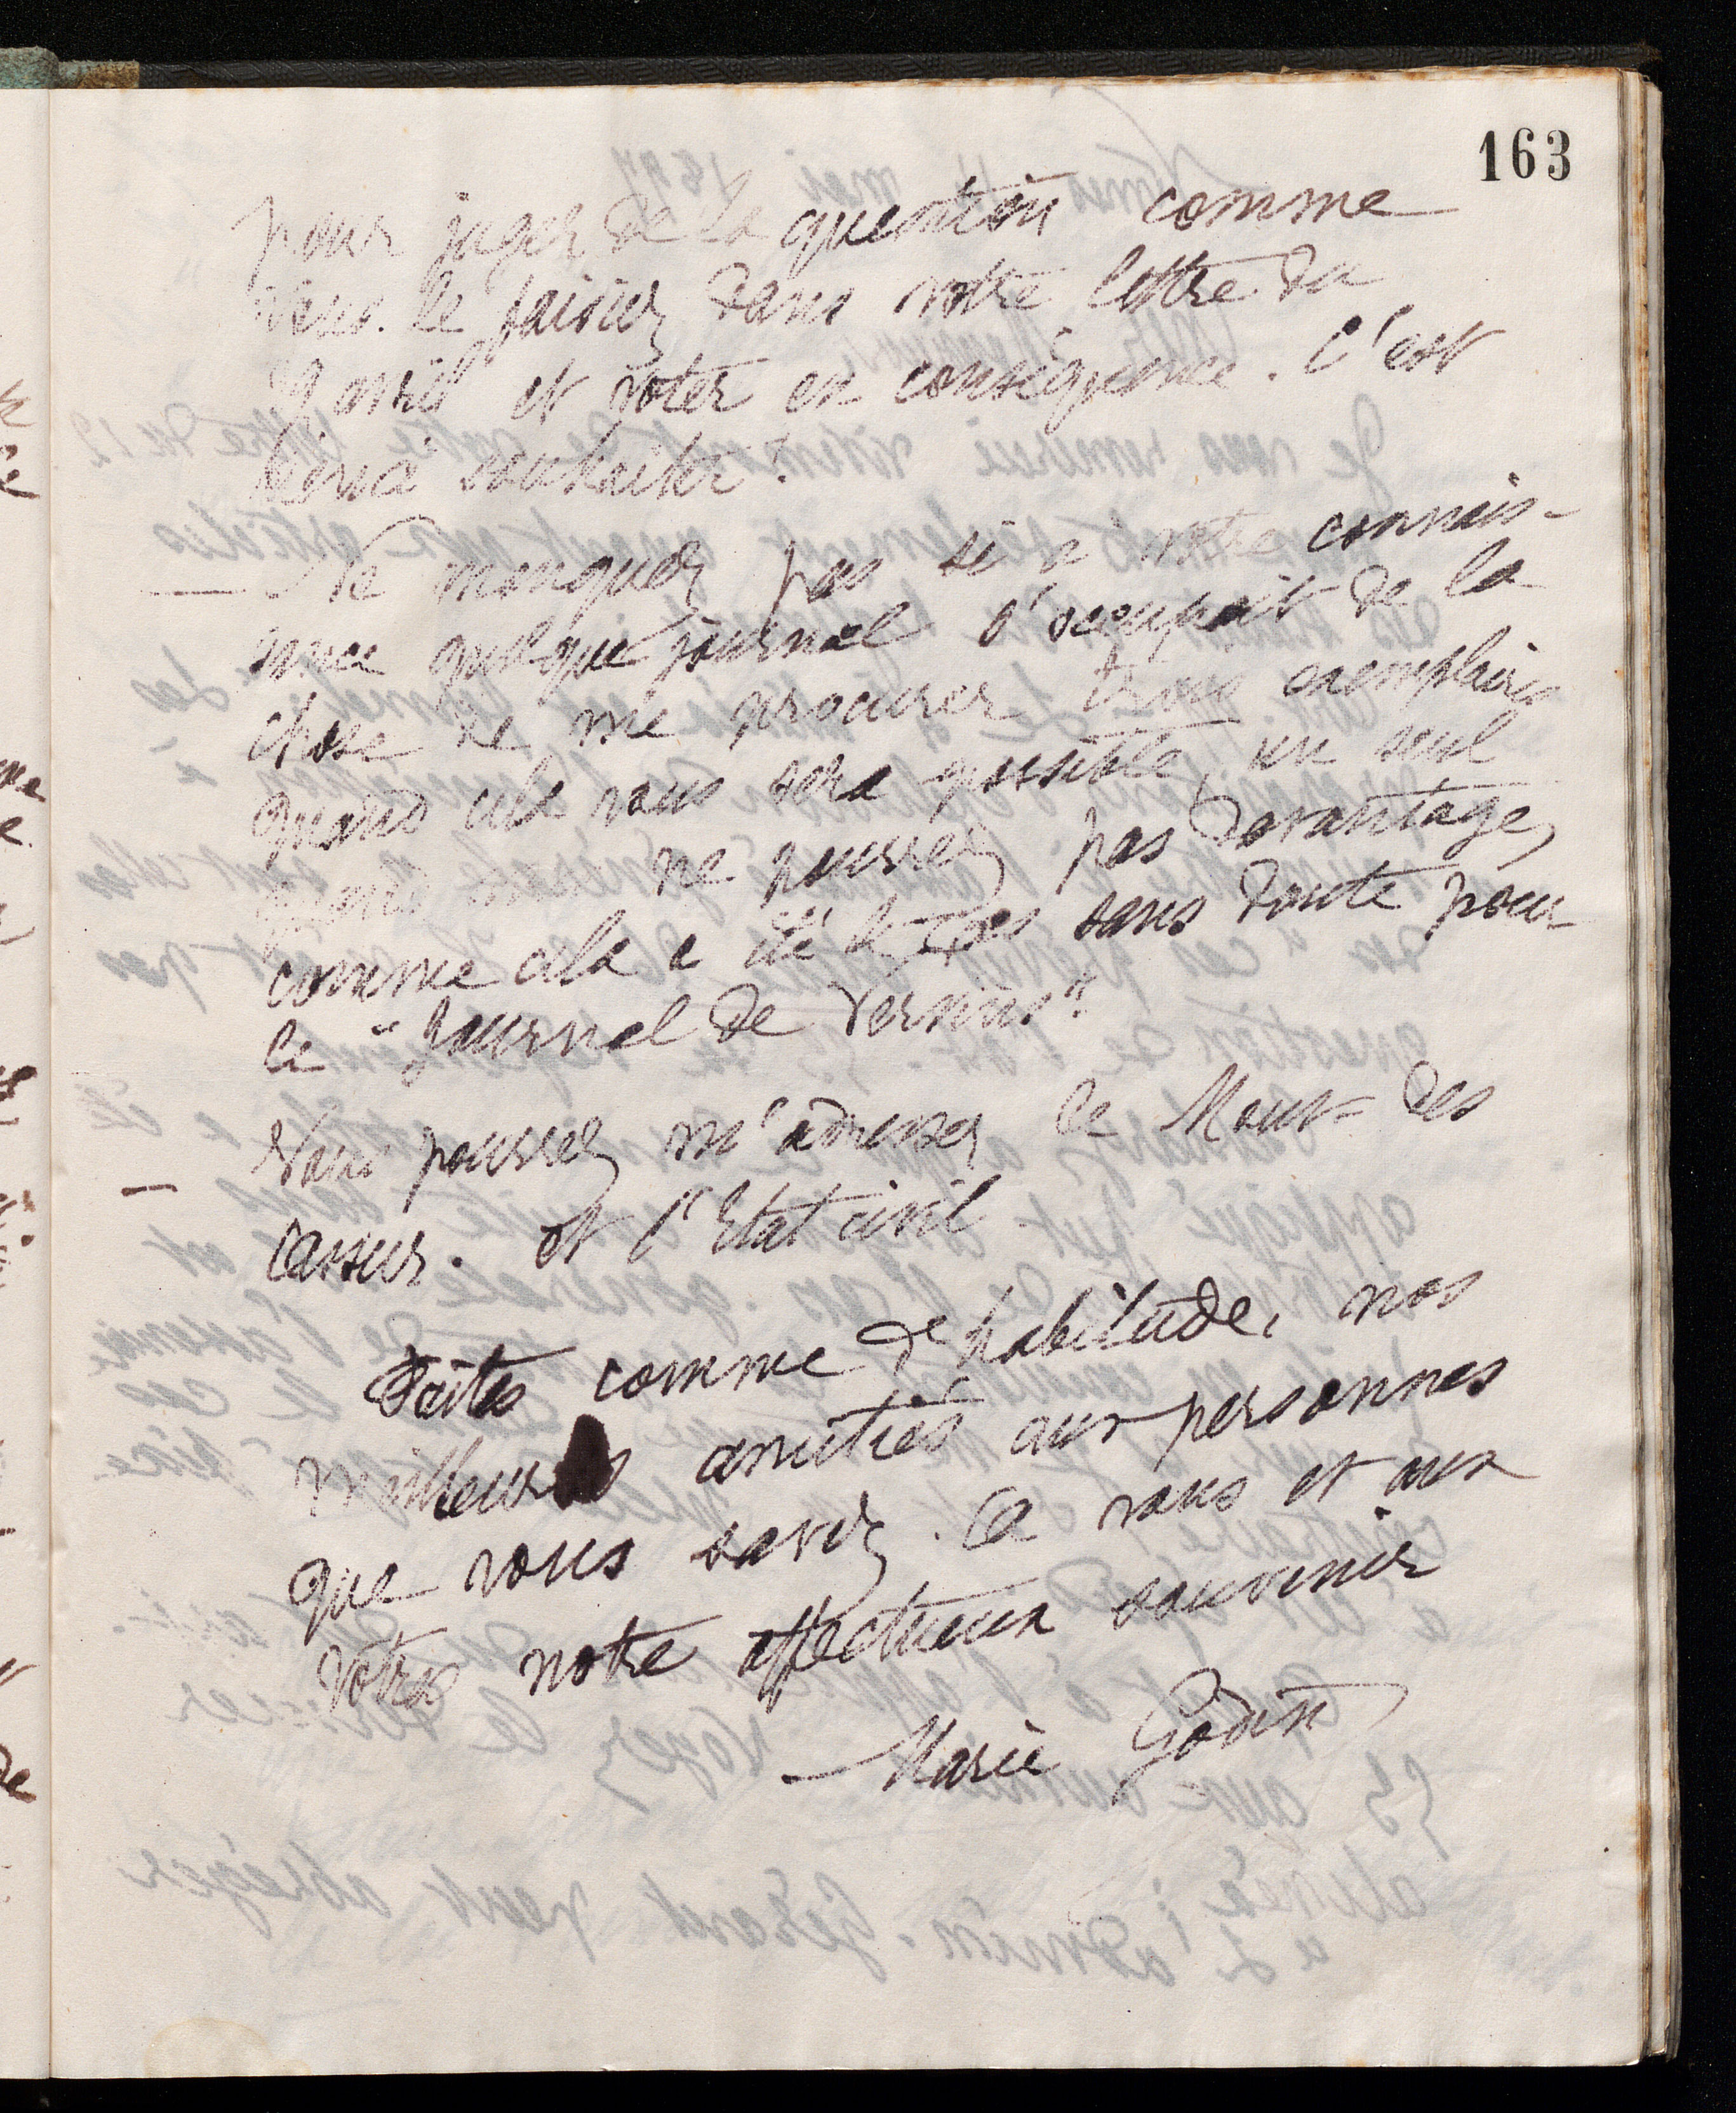 163
pour juger de la question comme
vous le faisiez dans votre lettre du
9 avril et voter en conséquence. C'est
bien à souhaiter !
— Ne manquez pas si à votre connais-
sance quelque journal s'occupait de la
chose de me procurer trois exemplaires
quand cela vous sera possible, un seul
quand vous ne pourrez pas davantage,
comme cela a été le cas sans doute pour
le "Journal de Vervins".
— Vous pourrez m'adresser le Mont des
et l'Etat civil
Faites comme d'habitude, nos
meilleures amitiés aux personnes
que vous savez. A vous et aux
vôtres notre affectueux souvenir
Marie Godin